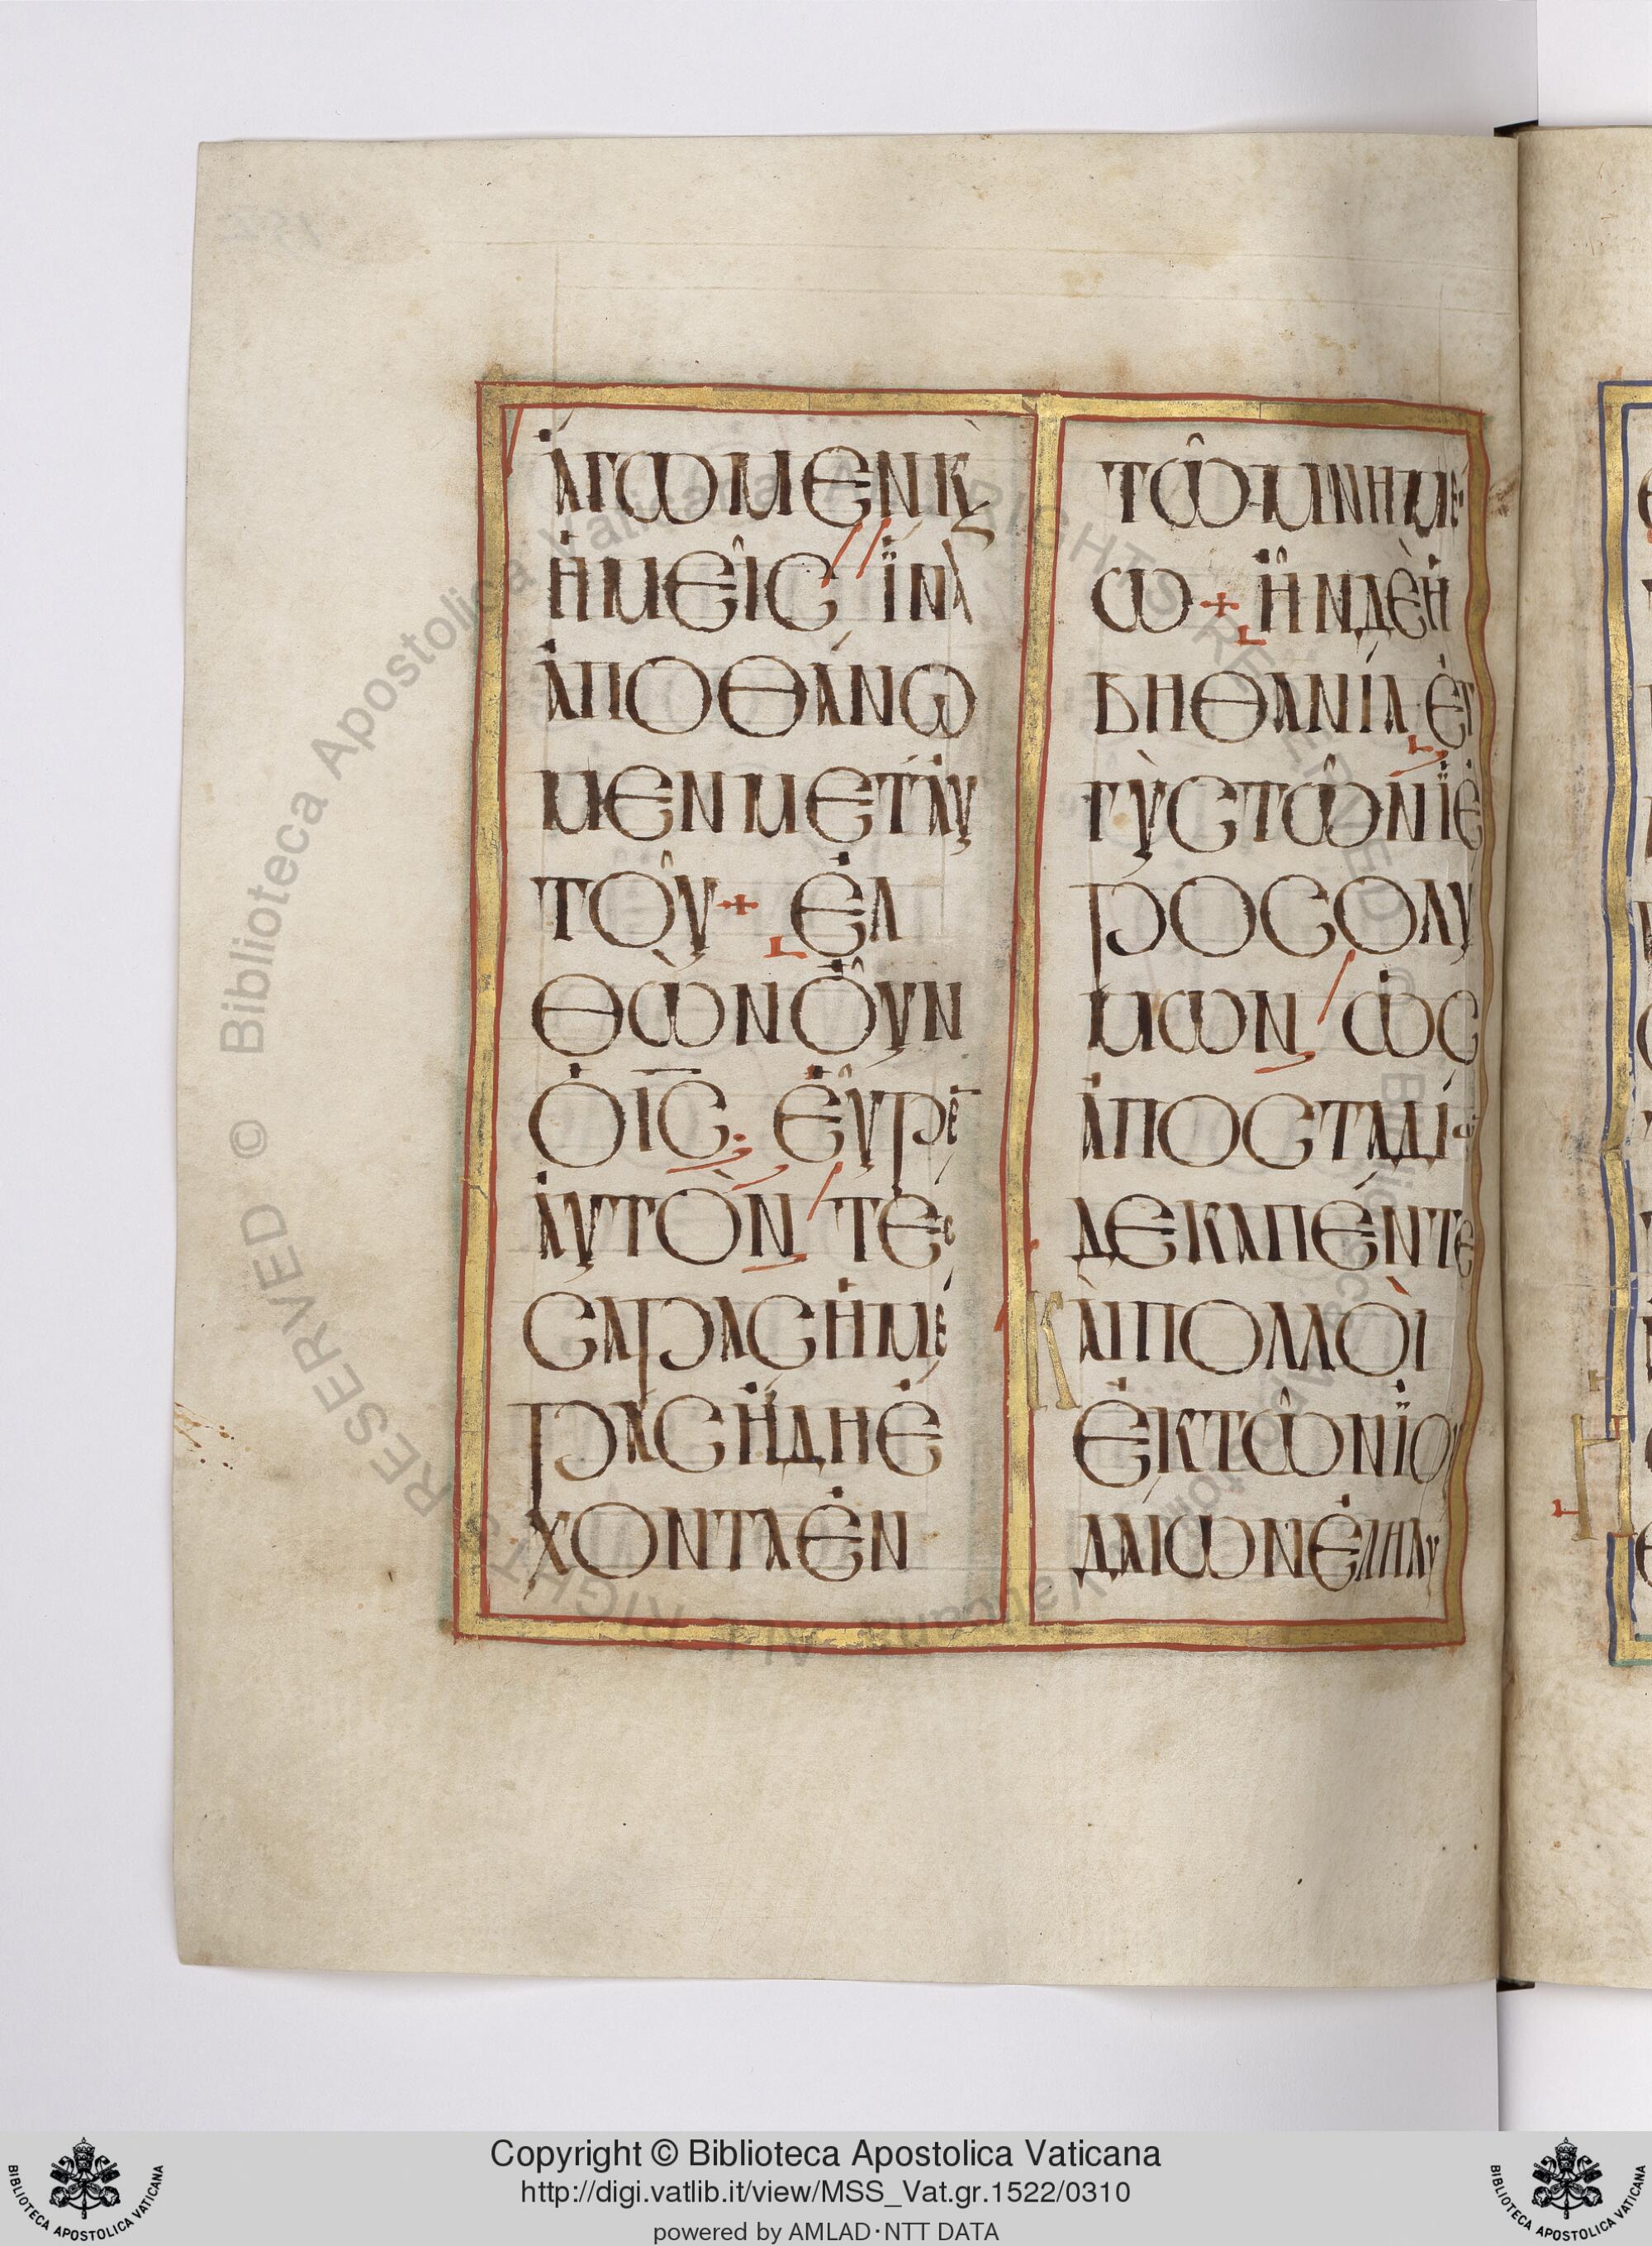 ἄγωμεν κ(αὶ)
ἡμεῖς ἵνα
ἀποθάνω
μεν μετ' αὐ
τοῦ + ἐλ
θὼν οὖν
ὁ ΙC εὗρε
αὐτὸν τέσ
σαρας ἡμέ
ρας ἤδη ἔ
χοντα ἐν
τῶ μνημεί
ω + ἦν δὲ ἡ
βηθανία ἐγ
γὺς τῶν ἱε
ροσολύ
μων ὡς
ἀπὸ σταδί
δεκαπέντε
καὶ πολλοὶ
ἐκ τῶν ἰου
δαίων ἐληλύ
Copyright © Biblioteca Apostolica Vaticana
http://digi.vatlib.it/view/MSS_Vat.gr.1522/0310
powered by AMLAD·NTT DATA
BIBLIOTECA APOSTOLICA VATICANA
BIBLIOTECA APOSTOLICA VATICANA